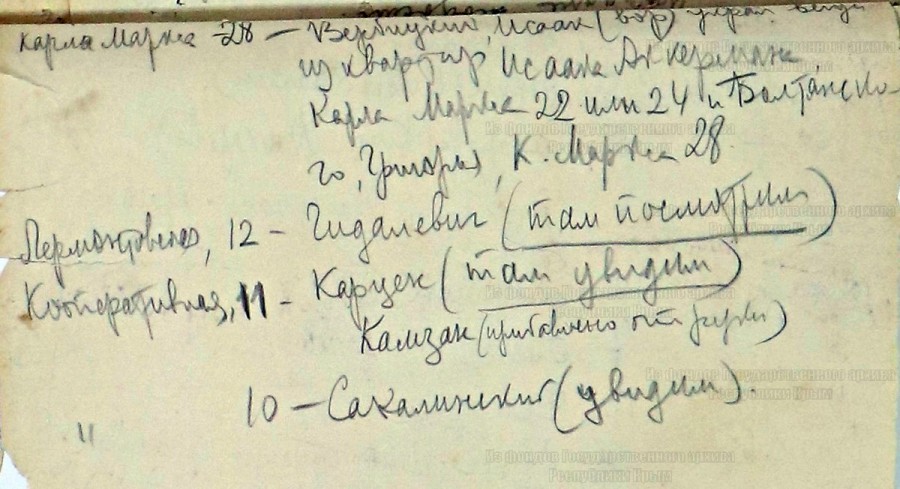 Карла Маркса 28 – Вербицкий, Исаак (вор) украл вещи
из квартир Исаака Аккермана,
Карла Маркса 22 или 24 и Болтанско-
го, Григория, К. Маркса 28.
Лермонтовская, 12 – Гидалевич (там посмотрим)
Кооперативная, 11 – Карцек (там увидим)
Камзан (прибавлено от руки)
" 10 – Сакалинский (увидим).
Из фондов Государственного архива
Республики Крым